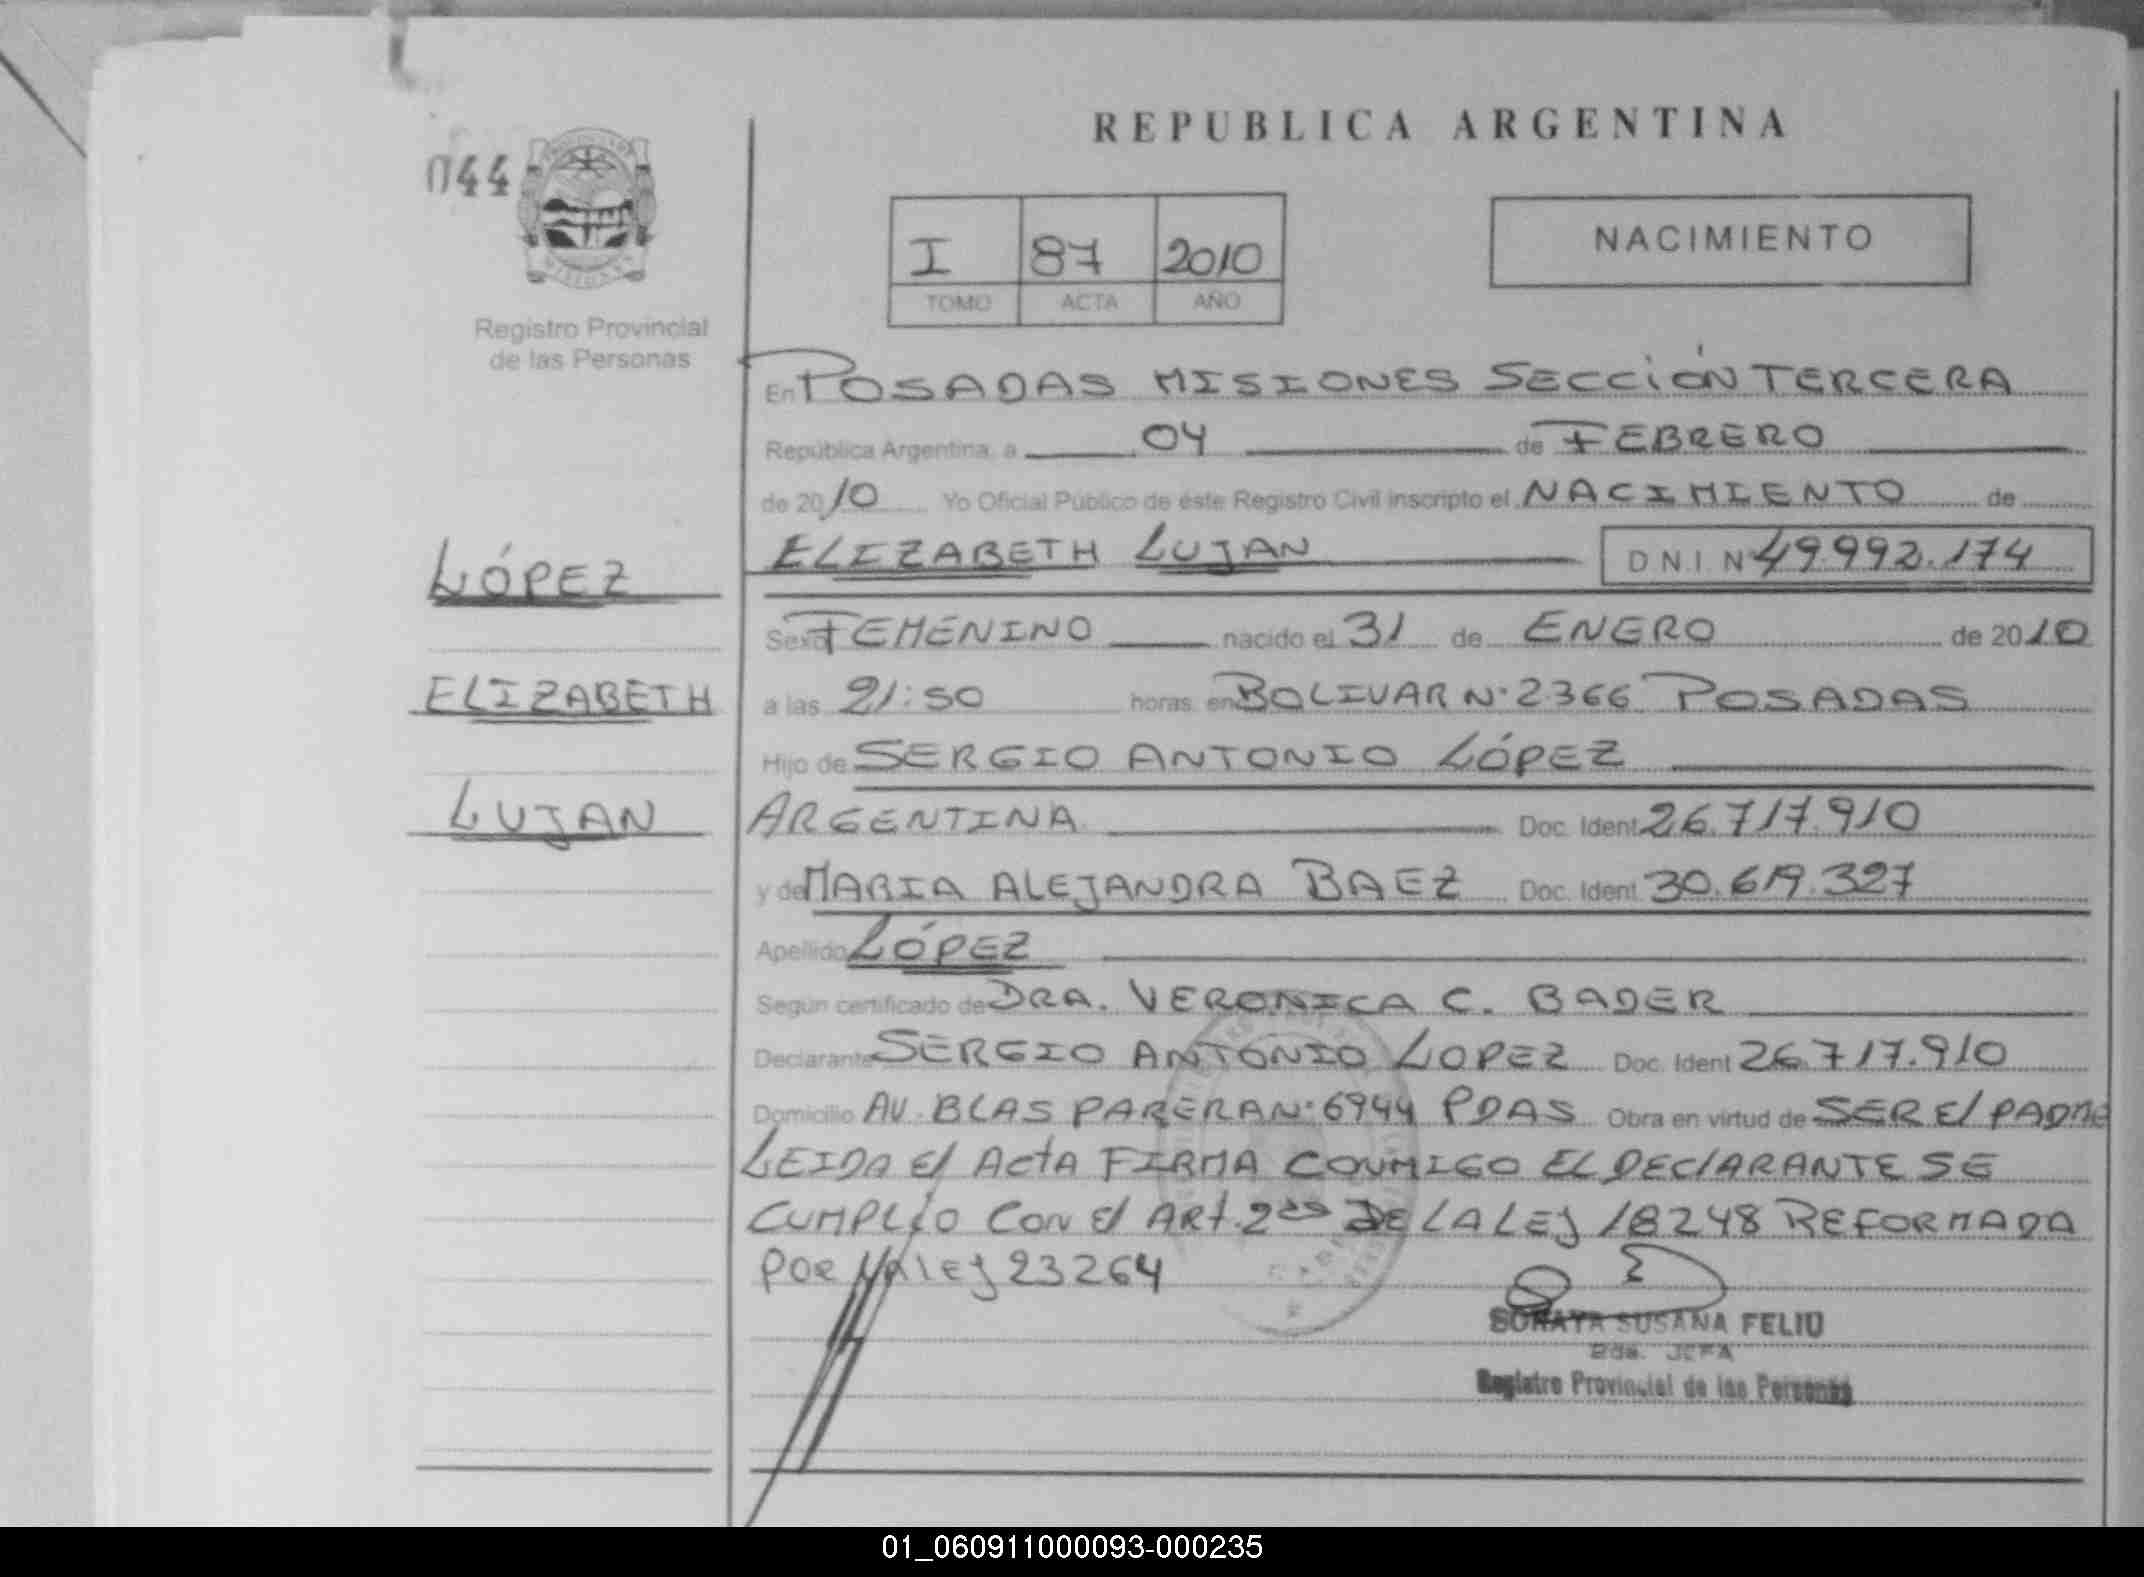 REPUBLICA ARGENTINA
044
I 87 2010
TOMO ACTA AÑO
NACIMIENTO
Registro Provincial
de las Personas
En POSADAS MISIONES SECCIÓN TERCERA
República Argentina, a 04 de FEBRERO
de 2010 Yo Oficial Público de éste Registro Civil inscripto el NACIMIENTO de
LÓPEZ
ELIZABETH LUJAN D N I Nº 49.992.174
Sexo FEMENINO nacido el 31 de ENERO de 2010
ELIZABETH
a las 21:50 horas en BOLIVAR N° 2366 POSADAS
Hijo de SERGIO ANTONIO LÓPEZ
LUJAN
ARGENTINA Doc. Ident 26.717.910
y de MARIA ALEJANDRA BAEZ Doc. Ident 30.619.327
Apellido LÓPEZ
Según certificado de DRA. VERONICA C. BADER
Declarante SERGIO ANTONIO LOPEZ Doc. Ident 26.717.910
Domicilio AV. BLAS PARERA N° 6944 PDAS Obra en virtud de SER El PADRE
LEIDA El ActA FIRMA CONMIGO EL DEClARANTE SE
CUMPLIO CON El ARt. 2do DE LA LEy 18248 REFORMADA
POR lA lEy 23264
SORAYA SUSANA FELIU
2da. JEFA
Registro Provincial de las Personas
01_060911000093-000235